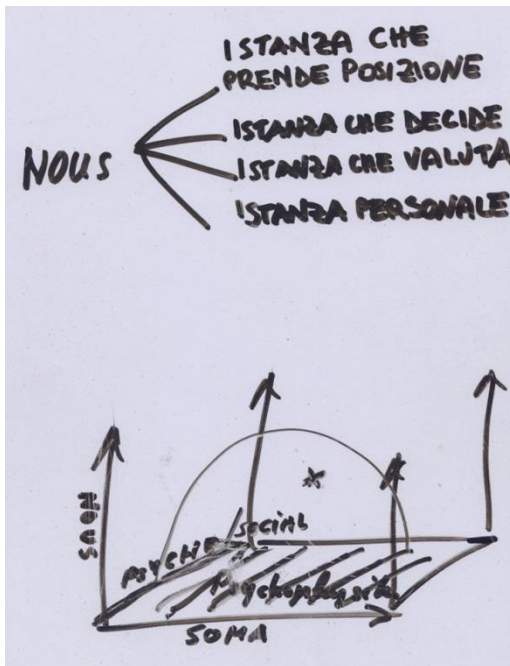 ISTANZA CHE
PRENDE POSIZIONE
NOUS
ISTANZA CHE DECIDE
ISTANZA CHE VALUTA
ISTANZA PERSONALE
NOUS
PSYCHE
SOCIAL
SOMA